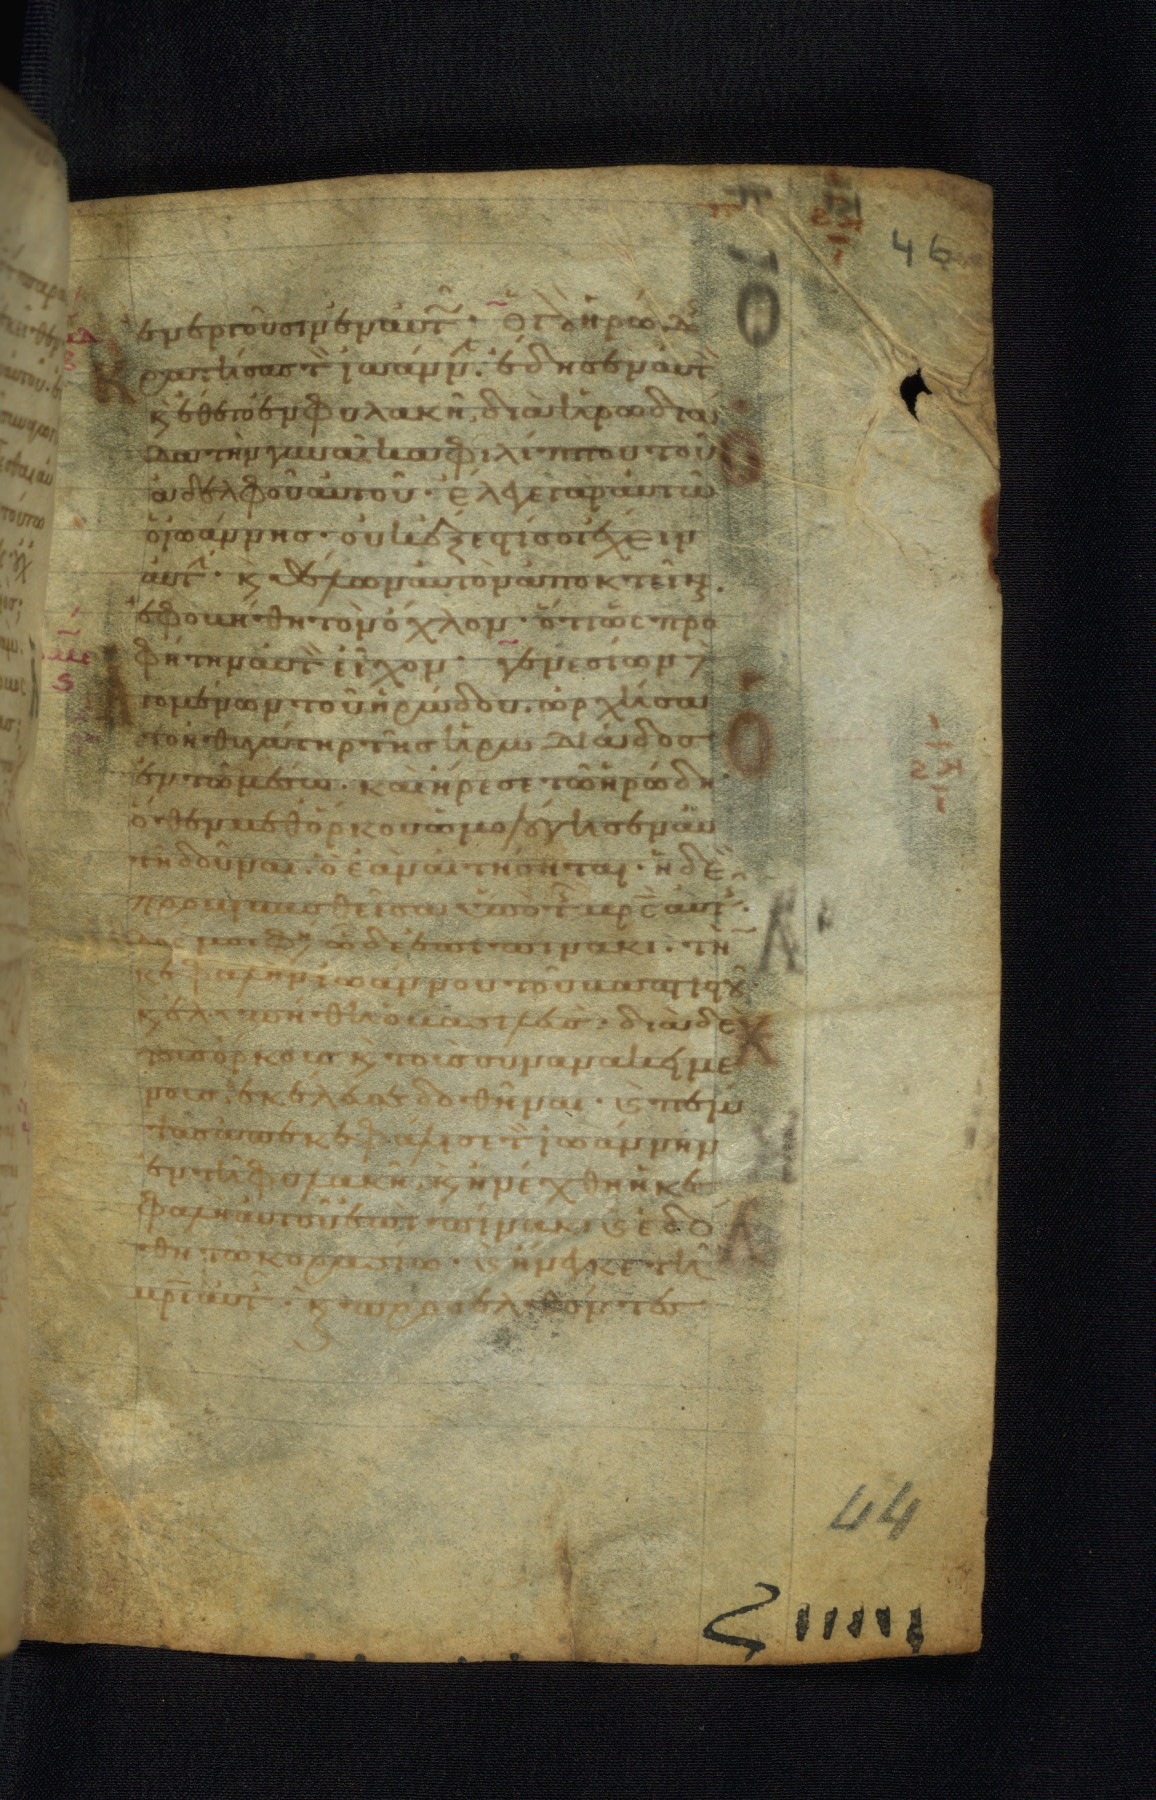 46
ἐνεργοῦσιν ἐν αὐτῷ · Ὁ γὰρ ἡρώδ
Κρατήσας τ ἰωάνν · ἔδησεν αὐτ
κ ἔθετο ἐν φυλακῇ · διὰ ἡρωδιά
δα τὴν γυναῖκα φιλίππου τοῦ
ἀδελφοῦ αὐτοῦ · ἔλεγε γὰρ αὐτῶ
ὁ ἰωάννης · οὐκ ἔξεστί σοι ἔχειν
αὐτ · κ θέλων αὐτὸν ἀποκτεῖναι ·
ἐφοβήθη τὸν ὄχλον · ὅτι ὡς προ
φήτην αὐτ εἶχον · γενεσίων
Ἀγομένων τοῦ ἡρώδου · ὠρχήσα
το ἡ θυγάτηρ τῆς ἡρωδιάδος
ἐν τῶ μέσω · καὶ ἤρεσε τῶ ἡρώδη ·
ὅθεν μεθ ὅρκου ὡμολόγησεν αὐ
τῆ δοῦναι · ὃ ἐὰν αἰτήσηται · ἡ δὲ
προβιβασθεῖσα ὑπὸ τ μρς αὐτ ·
δός μοι φη ὧδε ἐπὶ πίνακι · τὴ
κεφαλὴν ἰωάννου τοῦ βαπτιστοῦ
κ ἐλυπήθη ὁ βασιλεύς · διὰ δὲ
τοὺς ὅρκους κ τοὺς συνανακειμέ
νους · ἐκέλευσε δοθῆναι · κ πέμ
ψας ἀπεκεφάλισε τ ἰωάννην
ἐν τῆ φυλακῇ · κ ἠνέχθη ἡ κε
φαλὴ αὐτοῦ ἐπὶ πίνακι κ ἐδό
θη τῶ κορασίω · κ ἤνεγκε τῆ
μρι αὐτ · κ προσελθόντες
44